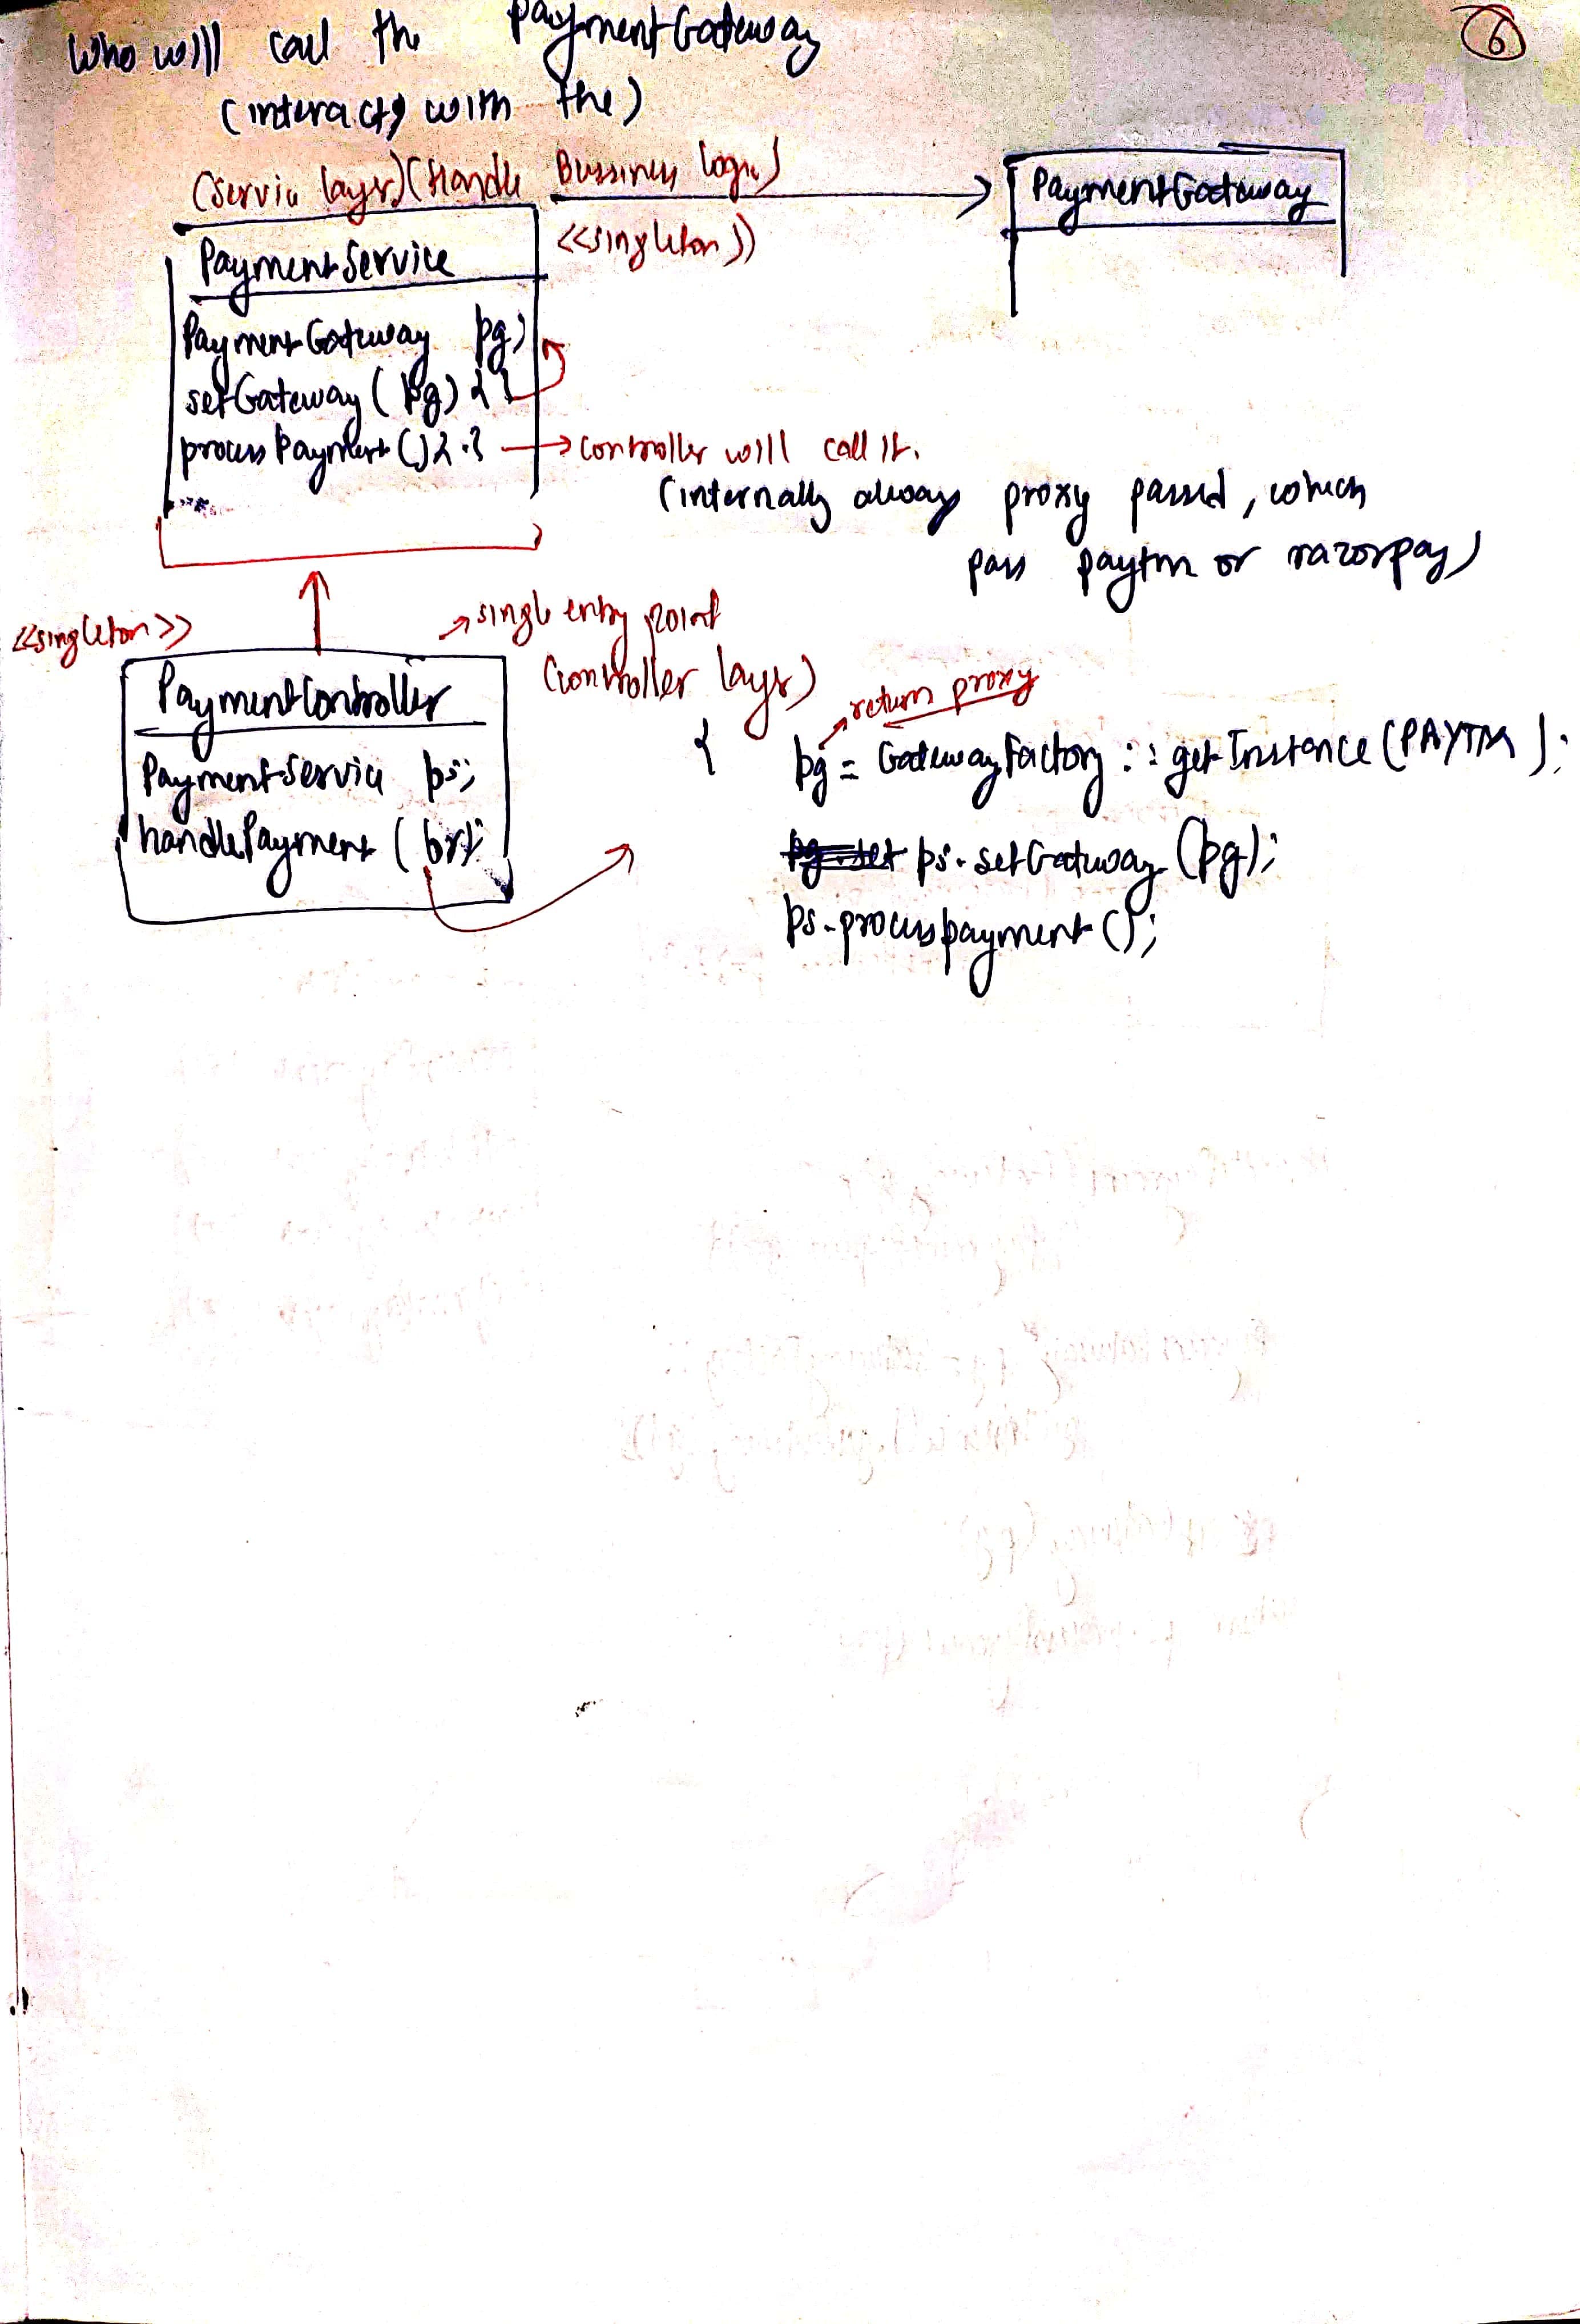 6
Who will call the PaymentGateway
(interacts with the)
(Service layer) (Handle Bussiness logic)
PaymentGateway
<<singleton>>
PaymentService
PaymentGateway pg;
setGateway (pg) { }
process Payment () { . } → controller will call it.
(internally always proxy passed, which
pass paytm or razorpay)
<<singleton>>
→ single entry point
(controller layer)
PaymentController
PaymentService ps;
handlePayment (
→ return proxy
{ pg = GatewayFactory :: getInstance (PAYTM);
pg.set ps.setGateway (pg);
ps.processpayment ();